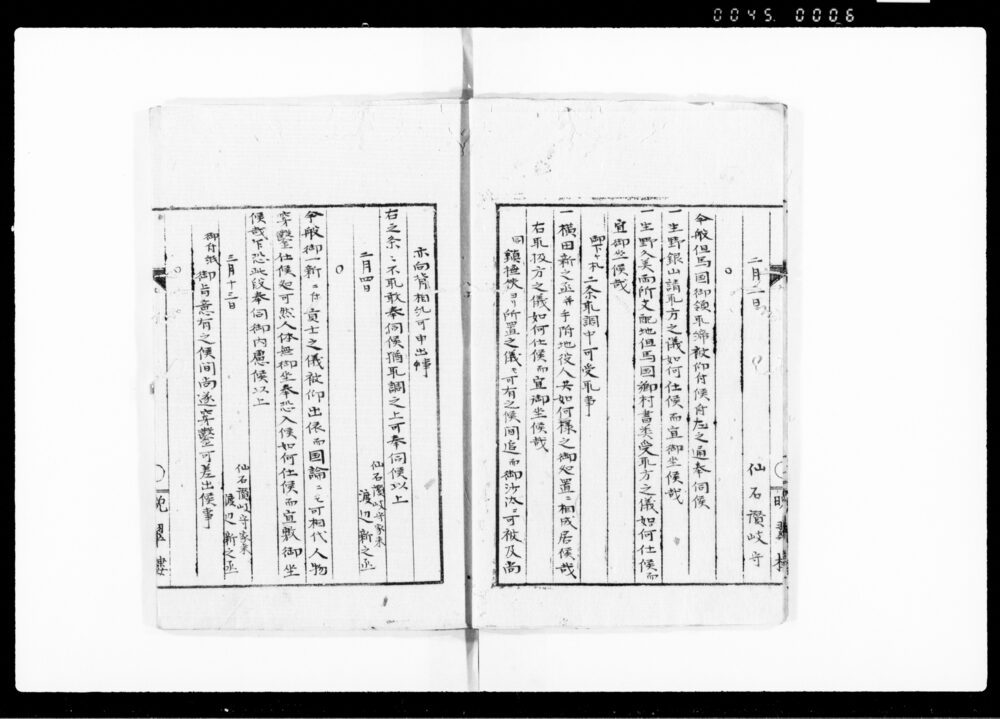 0045 0006
二月二日
仙石讃岐守
○
今般但馬国御領取締被仰付候付左之通奉伺候
一生野銀山請取方之儀如何仕候而宜御坐候哉
一生野久美両所支配地但馬国郷村書類受取方之儀如何仕候而
宜御坐候哉
御下ケ札二条取調中可受取事
一横田新之丞并手附地役人共如何様之御処置ニ相成居候哉
右取扱方之儀如何仕候而宜御坐候哉
同鎮撫使ヨリ所置之儀モ可有之候間追而御沙汰ニ可被及尚
亦向背相糺可申出事
右之条々不取敢奉伺候猶取調之上可奉伺候以上
仙石讃岐守家来
二月四日
渡辺新之丞
○
今般御一新ニ付貢士之儀被仰出依而国論ニモ可相代人物
穿鑿仕候処可然人体無御坐奉恐入候如何仕候而宜敷御坐
候哉乍恐此段奉伺御内慮候以上
仙石讃岐守家来
三月十三日
渡辺新之丞
御付紙御旨意有之候間尚遂穿鑿可差出候事
○
晩翠楼